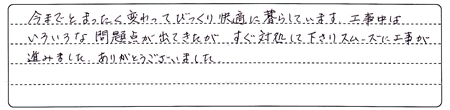 今までとまったく変わってびっくり快適に暮らしています。工事中は
いろいろな問題点が出てきたが すぐ対処して下さりスムーズに工事が
進みました。ありがとうございました